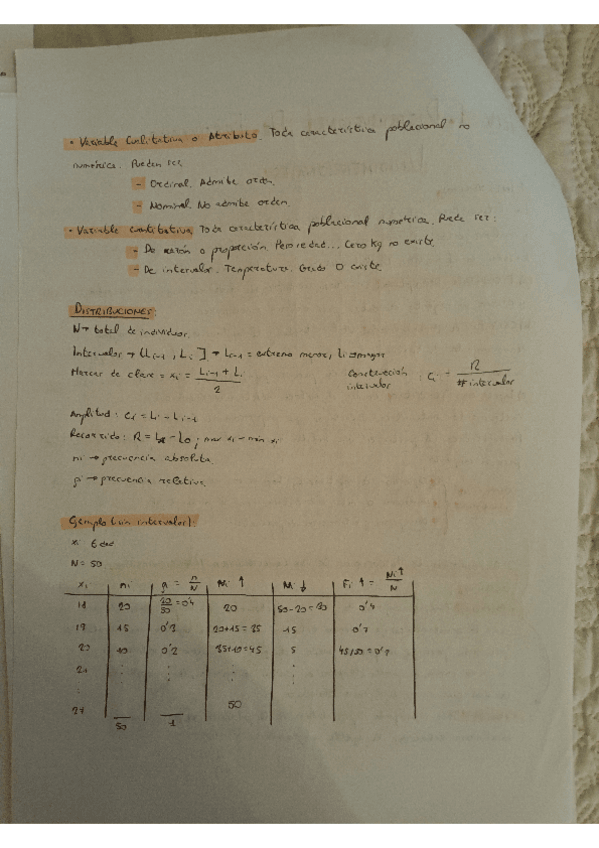 • Variable Cualitativa o Atributo. Toda característica poblacional no
numérica. Pueden ser
- Ordinal. Admite orden.
- Nominal. No admite orden.
• Variable cuantitativa. Toda característica poblacional numérica. Puede ser:
- De razón o proporción. Peso, edad... Cero kg no existe
- De intervalo. Temperatura. Grado 0 existe.
DISTRIBUCIONES:
N → total de individuos.
Intervalos → (Li-1, Li] → Li-1 = extremo menor, Li = mayor
Marcas de clase = xi = (Li-1 + Li) / 2
Construcción intervalos: ci = R / # intervalos
Amplitud: ci = Li - Li-1
Recorrido: R = Lk - L0; max xi - min xi
ni → frecuencia absoluta.
fi → frecuencia relativa
Ejemplo (sin intervalos):
xi Edad
N = 50
xi | ni | fi = n/N | Ni ↑ | Ni ↓ | Fi ↑ = Ni↑/N
18 | 20 | 20/50 = 0'4 | 20 | 50-20=30 | 0'4
19 | 15 | 0'3 | 20+15=35 | 15 | 0'7
20 | 10 | 0'2 | 35+10=45 | 5 | 45/50=0'9
50
50 1